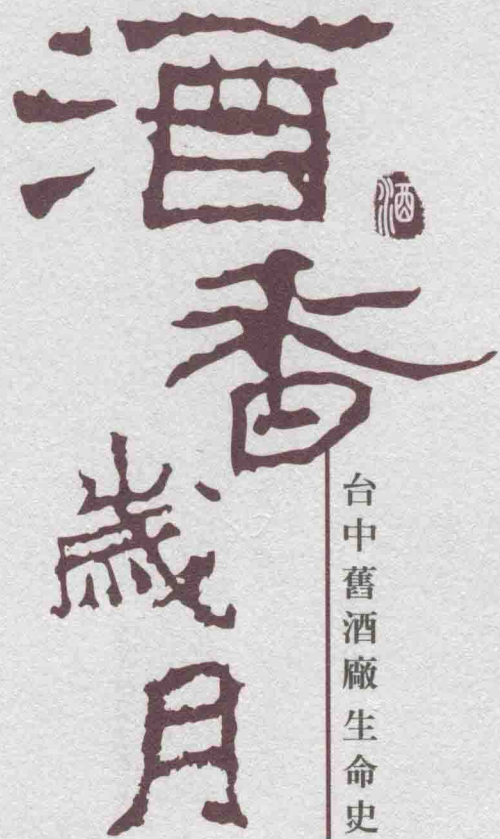 酒香歲月
酒
台中舊酒廠生命史